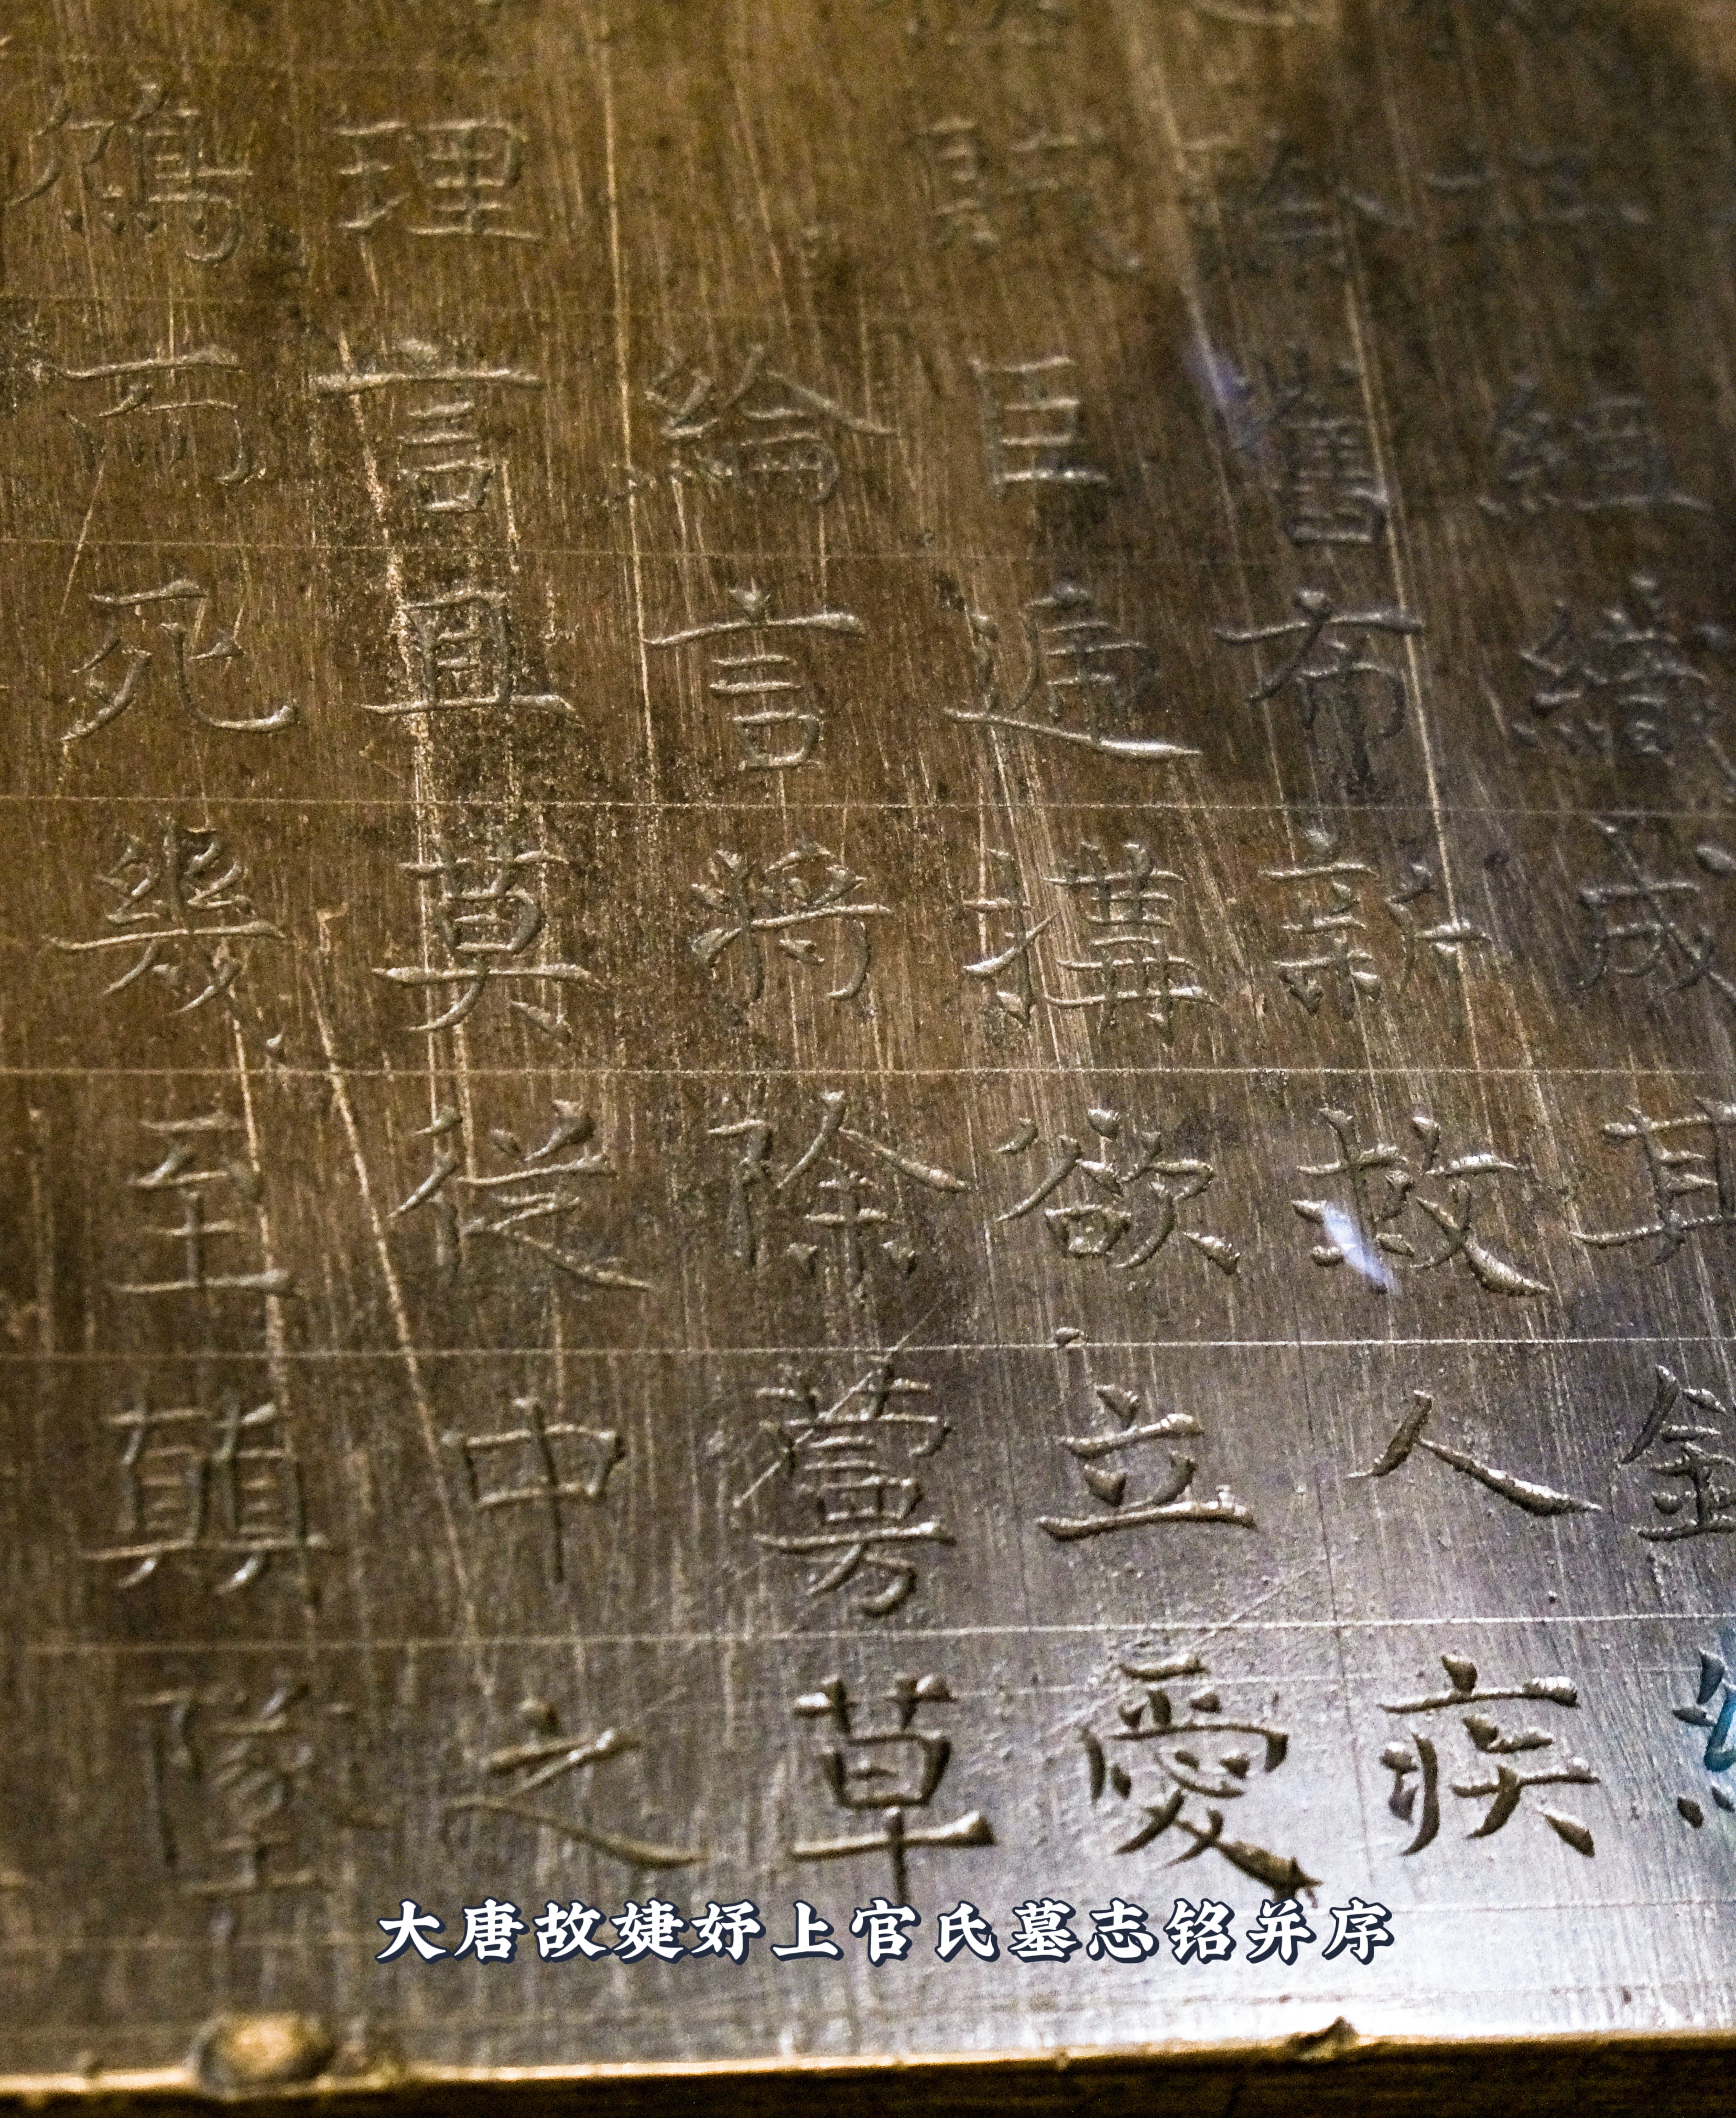 組織成其錦
除舊布新救人疾
賊臣遞搆欲立愛
綸言將除蔓草
理言且莫從中之
鴆而死幾至顛墜
大唐故婕妤上官氏墓志铭并序